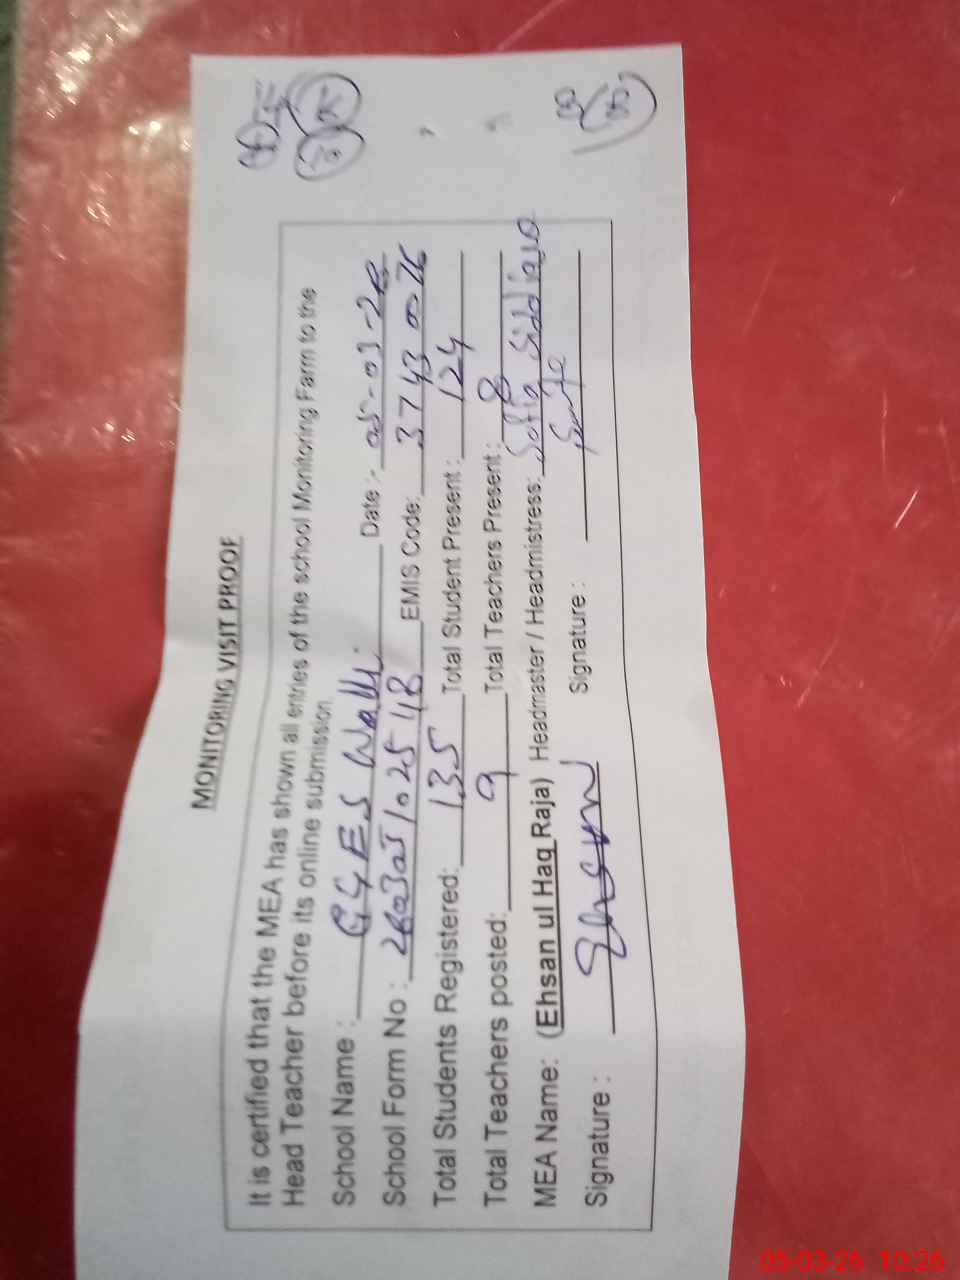 MONITORING VISIT PROOF
It is certified that the MEA has shown all entries of the school Monitoring Farm to the
Head Teacher before its online submission.
School Name : GGES Wally. Date :- 05-03-26
School Form No : EMIS Code: 3743
Total Students Registered: 135 Total Student Present : 124
Total Teachers posted: 9 Total Teachers Present : 8
MEA Name: (Ehsan ul Haq Raja) Headmaster / Headmistress: Sofia Siddiqua
Signature : Signature :
05-03-26 10:26